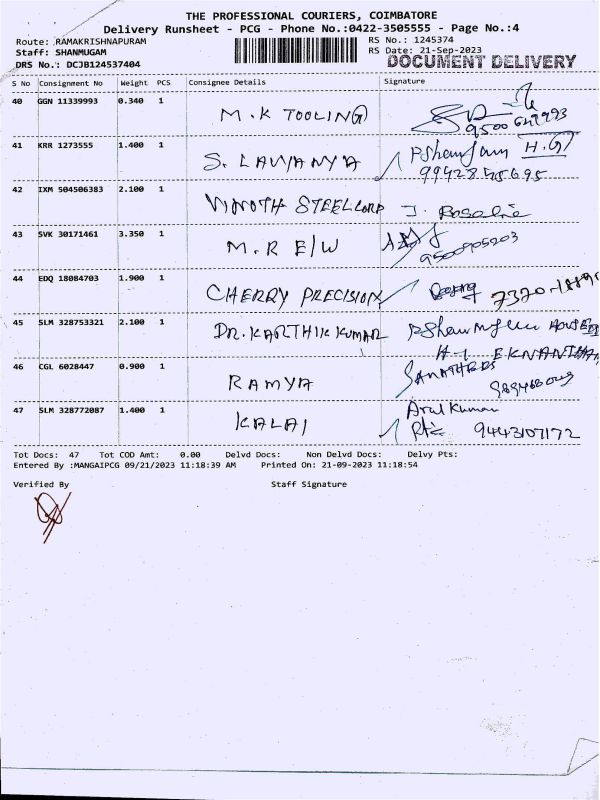 THE PROFESSIONAL COURIERS, COIMBATORE
Delivery Runsheet - PCG - Phone No.:0422-3505555 - Page No.:4
Route: .RAMAKRISHNAPURAM RS No.: 1245374
Staff: SHANMUGAM RS Date: 21-Sep-2023
DRS No.: DCJB124537404 DOCUMENT DELIVERY
S No Consignment No Weight PCS Consignee Details Signature
40 GGN 11339993 0.340 1 M.K TOOLING
41 KRR 1273555 1.400 1 S. LAVANYA H.G
42 IXM 504506383 2.100 1 VINOTH STEEL CORP J. Rosalie
43 SVK 30171461 3.350 1 M.R E/W
9500905203
44 EDQ 18084703 1.900 1 CHERRY PRECISION
45 SLM 328753321 2.100 1 DR. KARTHIK KUMAR
46 CGL 6028447 0.900 1 RAMYA
47 SLM 328772087 1.400 1 KALAI Arul Kumar
9443107172
Tot Docs: 47 Tot COD Amt: 0.00 Delvd Docs: Non Delvd Docs: Delvy Pts:
Entered By :MANGAIPCG 09/21/2023 11:18:39 AM Printed On: 21-09-2023 11:18:54
Verified By Staff Signature